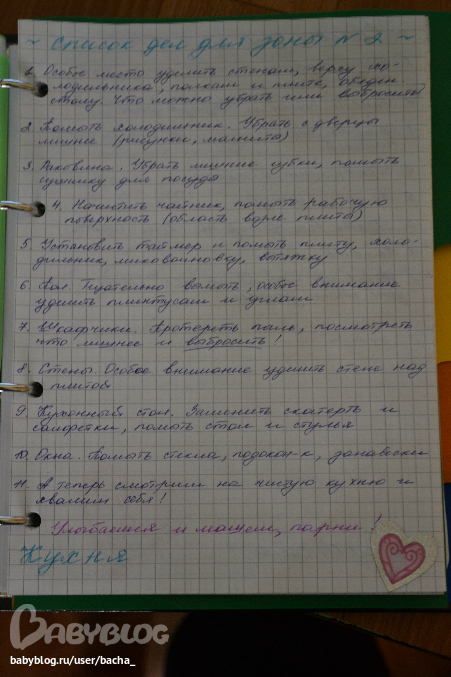 ~ Список дел для зоны № 2 ~
1. Особое место уделить стенам, верху хо-
лодильника, полкам и плите, обеден.
столу. Что можно убрать или выбросить
2. Помыть холодильник. Убрать с дверцы
лишнее (рисунки, магниты)
3. Раковина. Убрать лишние губки, помыть
сушилку для посуды
4. Начистить чайник, помыть рабочую
поверхность (область возле плиты)
5. Установить таймер и помыть плиту, холо-
дильник, микроволновку, вытяжку
6. Пол. Тщательно вымыть, особое внимание
уделить плинтусам и углам
7. Шкафчики. Протереть пыль, посмотреть
что лишнее и выбросить!
8. Стены. Особое внимание уделить стене над
плитой
9. Кухонный стол. Заменить скатерть и
салфетки, помыть стол и стулья
10. Окна. Помыть стекла, подокон-к, занавески
11. А теперь смотрим на чистую кухню и
хвалим себя!
Улыбаемся и машем, парни!
Кухня
BABYBLOG
babyblog.ru/user/bacha_